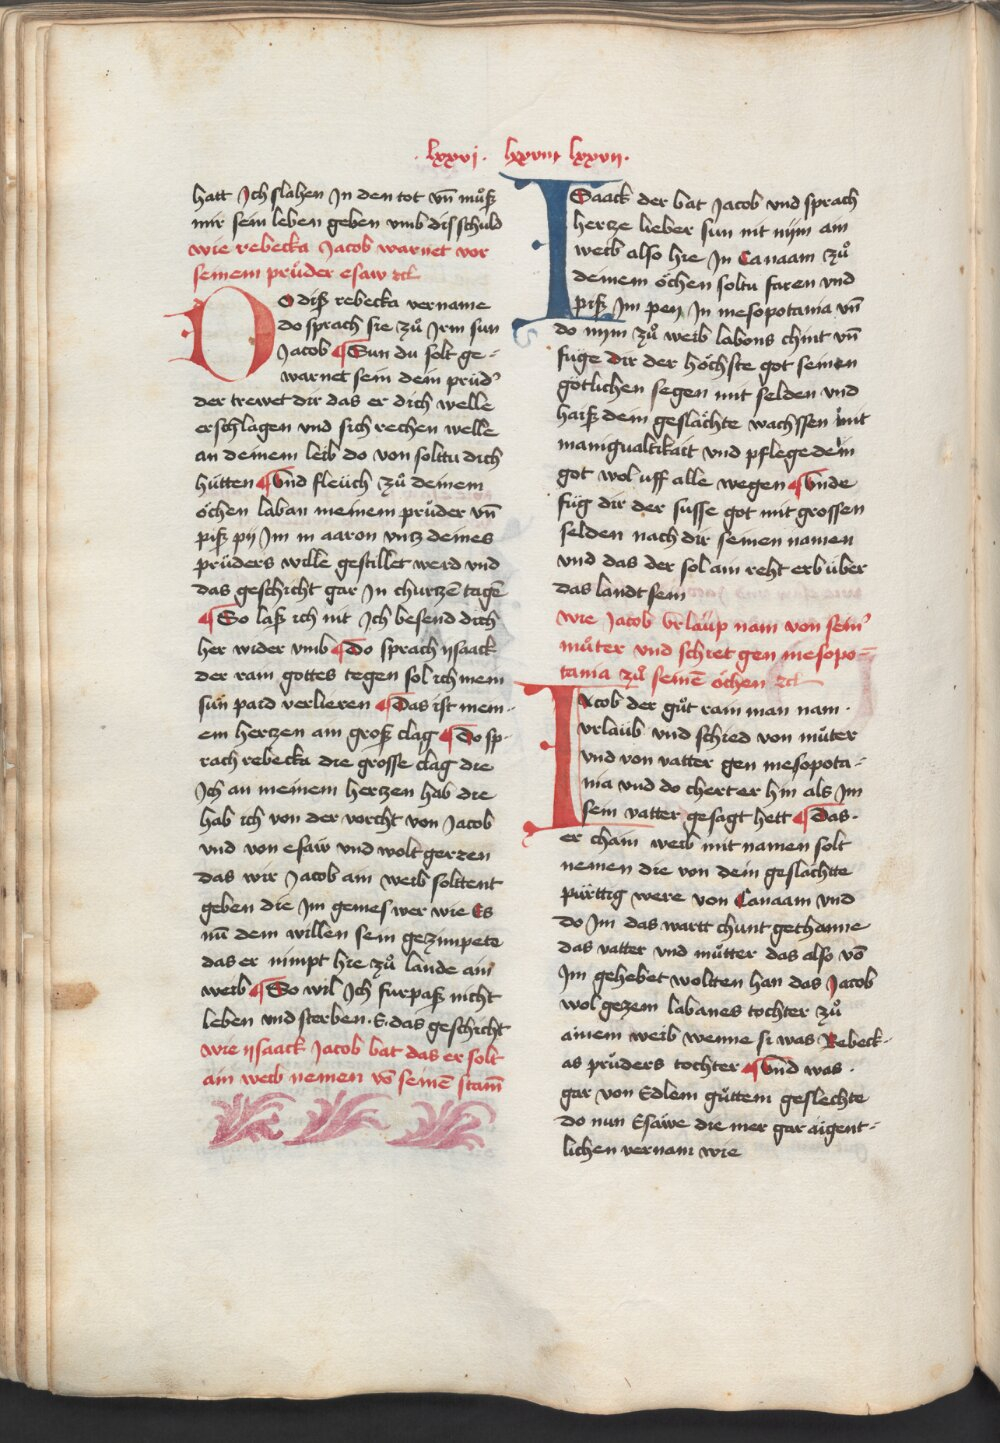 · lxxvj · lxxviii lxxvii ·
hatt Ich slahen In den tot vn̄ můß
mir sein leben geben vmb dis schuld
wie rebecka Jacob warnet vor
seinem průder esaw ꝛcͣ
DO diß rebecka vername
do sprach sie zů Irm sun
Jacob ¶ Sun du solt ge-
warnet sein dein prüdʼ
der trewet dir das er dich welle
erschlagen vnd sich rechen welle
an deinem leib do von soltu dich
hütten ¶ Vnd fleuch zů deinem
öchen laban meinem prüder vn̄
piß pij Im in aaron vntz deines
prüders wille gestillet werd vnd
das geschicht gar In churtzē tagē
¶ So laß ich nit Ich besend dich
her wider vmb ¶ Do sprach ysaack
der rain gottes tegen sol ich mein
sün paid verlieren ¶ Das ist mein-
em hertzen am groß clag ¶ Do sp-
rach rebecka die grosse clag die
Ich an meinem hertzen hab die
hab ich von der vorcht von Jacob
vnd von esaw vnd wolt geren
das wir Jacob ain weib solttent
geben die Im gemes wer wie Es
nū dem willen sein gezimpete
das er nimpt hie zů lande ain
weib ¶ So wil Ich furpaß nicht
leben vnd sterben · E · das geschicht
wie ysaack Jacob bat das er solt
ain weib nemen vō seinē stam̄
ISaack der bat Jacob vnd sprach
hertze lieber sun nit nijm ain
weib also hie In Canaam zů
deinem öchen soltu faren vnd
piß Im pey In mesopotania vn̄
do nym zů weib labons chint vn̄
füge dir der höchste got seinen
götlichen segen mit selden vnd
haiß dein geslächte wachssen mit
manigualtikait vnd pflege dein
got wol uff alle wegen ¶ Vnde
füg dir der susse got mit grossen
selden nach dir seinen namen
vnd das der sol ain reht erb über
das landt sein
wie Jacob vrlaup nam von seinʼ
můter vnd schiet gen mesopo-
tania zů seinē öchen ꝛcͣ
IAcob der gůt rain man nam ·
vrlaub vnd schied von můter
vnd von vatter gen mesopota-
nia vnd do cherter hin als Im
sein vatter gesagt hett ¶ Das ·
er chain weib mit namen solt
nemen die von dem geslächtte
pürttig were von Canaam vnd
do Im das wartt chunt gethanne
das vatter vnd můtter das also vō
Im gehebet woltten han das Jacob
wol gezem labanes tochter zů
ainem weib wenne si was Rebeck-
as prüders tochter ¶ Vnd was ·
gar von Edlem gůttem geslechte
do nun Esawe die mer gar aigent-
lichen vernam wie